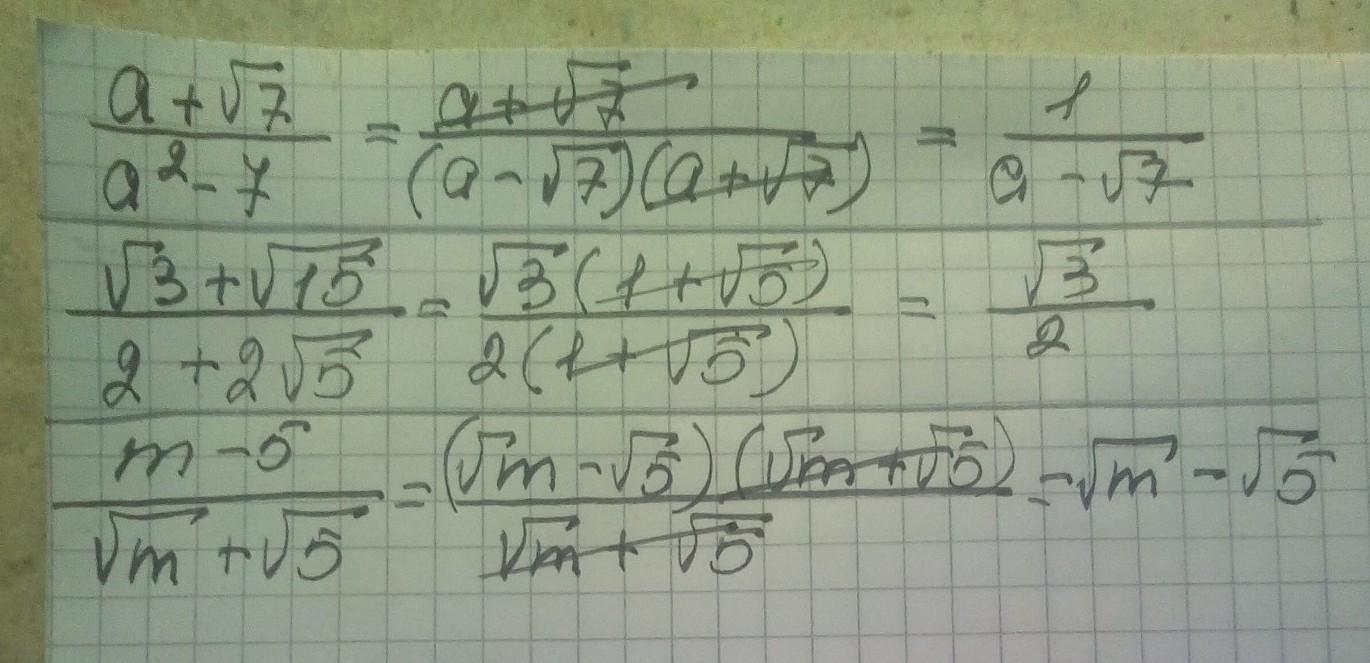 (a + √7)/(a² - 7) = (a + √7)/((a - √7)(a + √7)) = 1/(a - √7)
(√3 + √15)/(2 + 2√5) = (√3(1 + √5))/(2(1 + √5)) = √3/2
(m - 5)/(√m + √5) = ((√m - √5)(√m + √5))/(√m + √5) = √m - √5